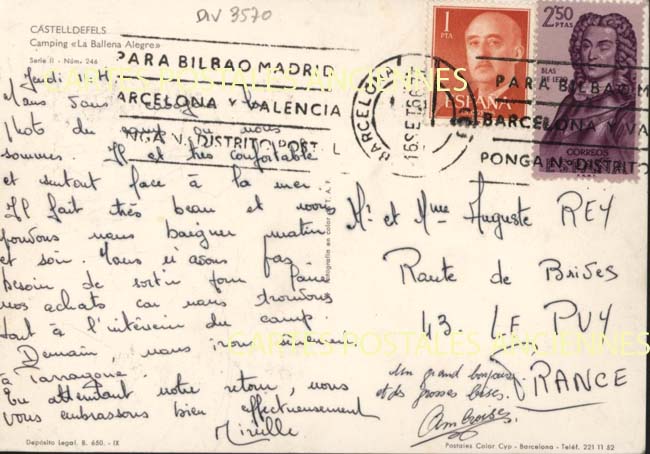 DIV 3570
CASTELLDEFELS
Camping «La Ballena Alegre»
Serie II - Núm. 246
PARA BILBAO MADRID
BARCELONA Y VALENCIA
PONGA Nº DISTRITO POSTAL
BARCELONA
16 SET 66
1 PTA
ESPAÑA
2'50 PTAS
BLAS DE LEZO
CORREOS
PARA BILBAO M
BARCELONA Y VA
PONGA Nº DISTRITO
CARTES POSTALES ANCIENNES
Jeudi
Nous
photo du camp où nous
sommes. Il est très confortable
et surtout face à la mer
Il fait très beau et nous
pouvons nous baigner matin
et soir. Nous n'avons pas
besoin de sortir pour faire
nos achats car nous trouvons
tout à l'intérieur du camp.
Demain, nous irons
à Tarragone.
En attendant notre retour, nous
vous embrassons bien affectueusement
Mireille
Mr et Mme Auguste REY
Route de Brives
43. LE PUY
FRANCE
CARTES POSTALES ANCIENNES
Un grand bonjour
et de grosses bises.
Ambroise
Depósito Legal. B. 650. - IX
Postales Color Cyp - Barcelona - Teléf. 221 11 52